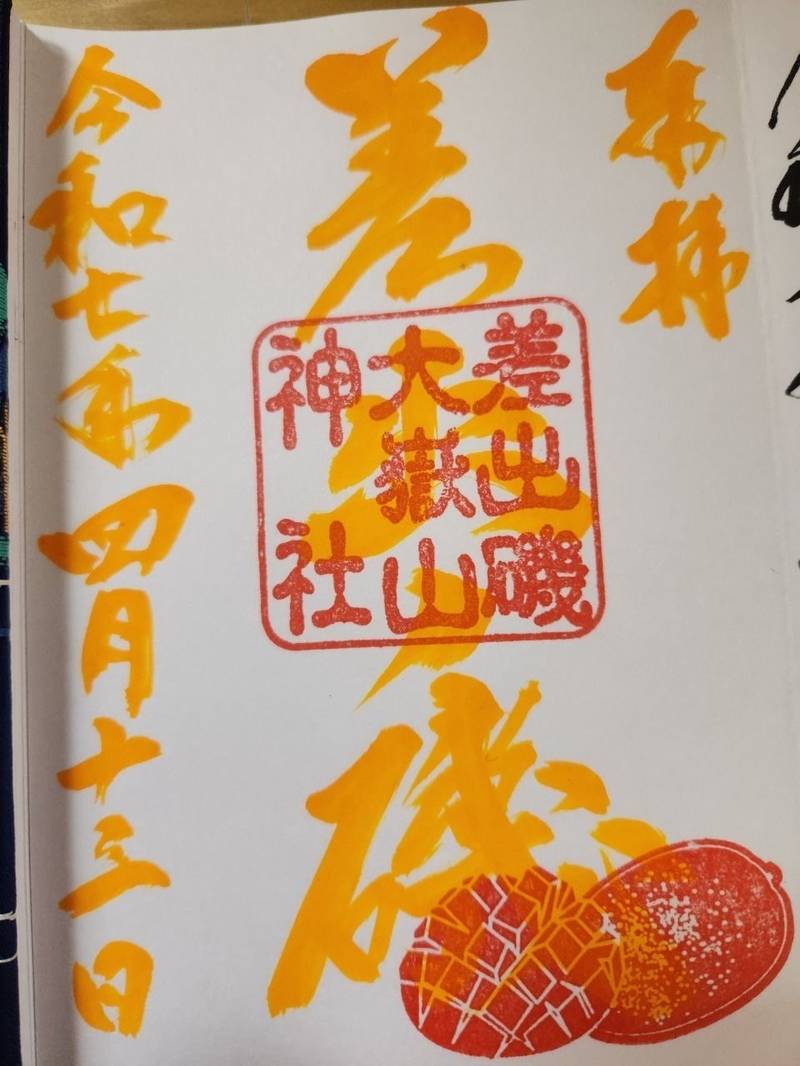 奉拝
差出ノ磯
差出磯
大嶽山
神社
令和七年四月十三日